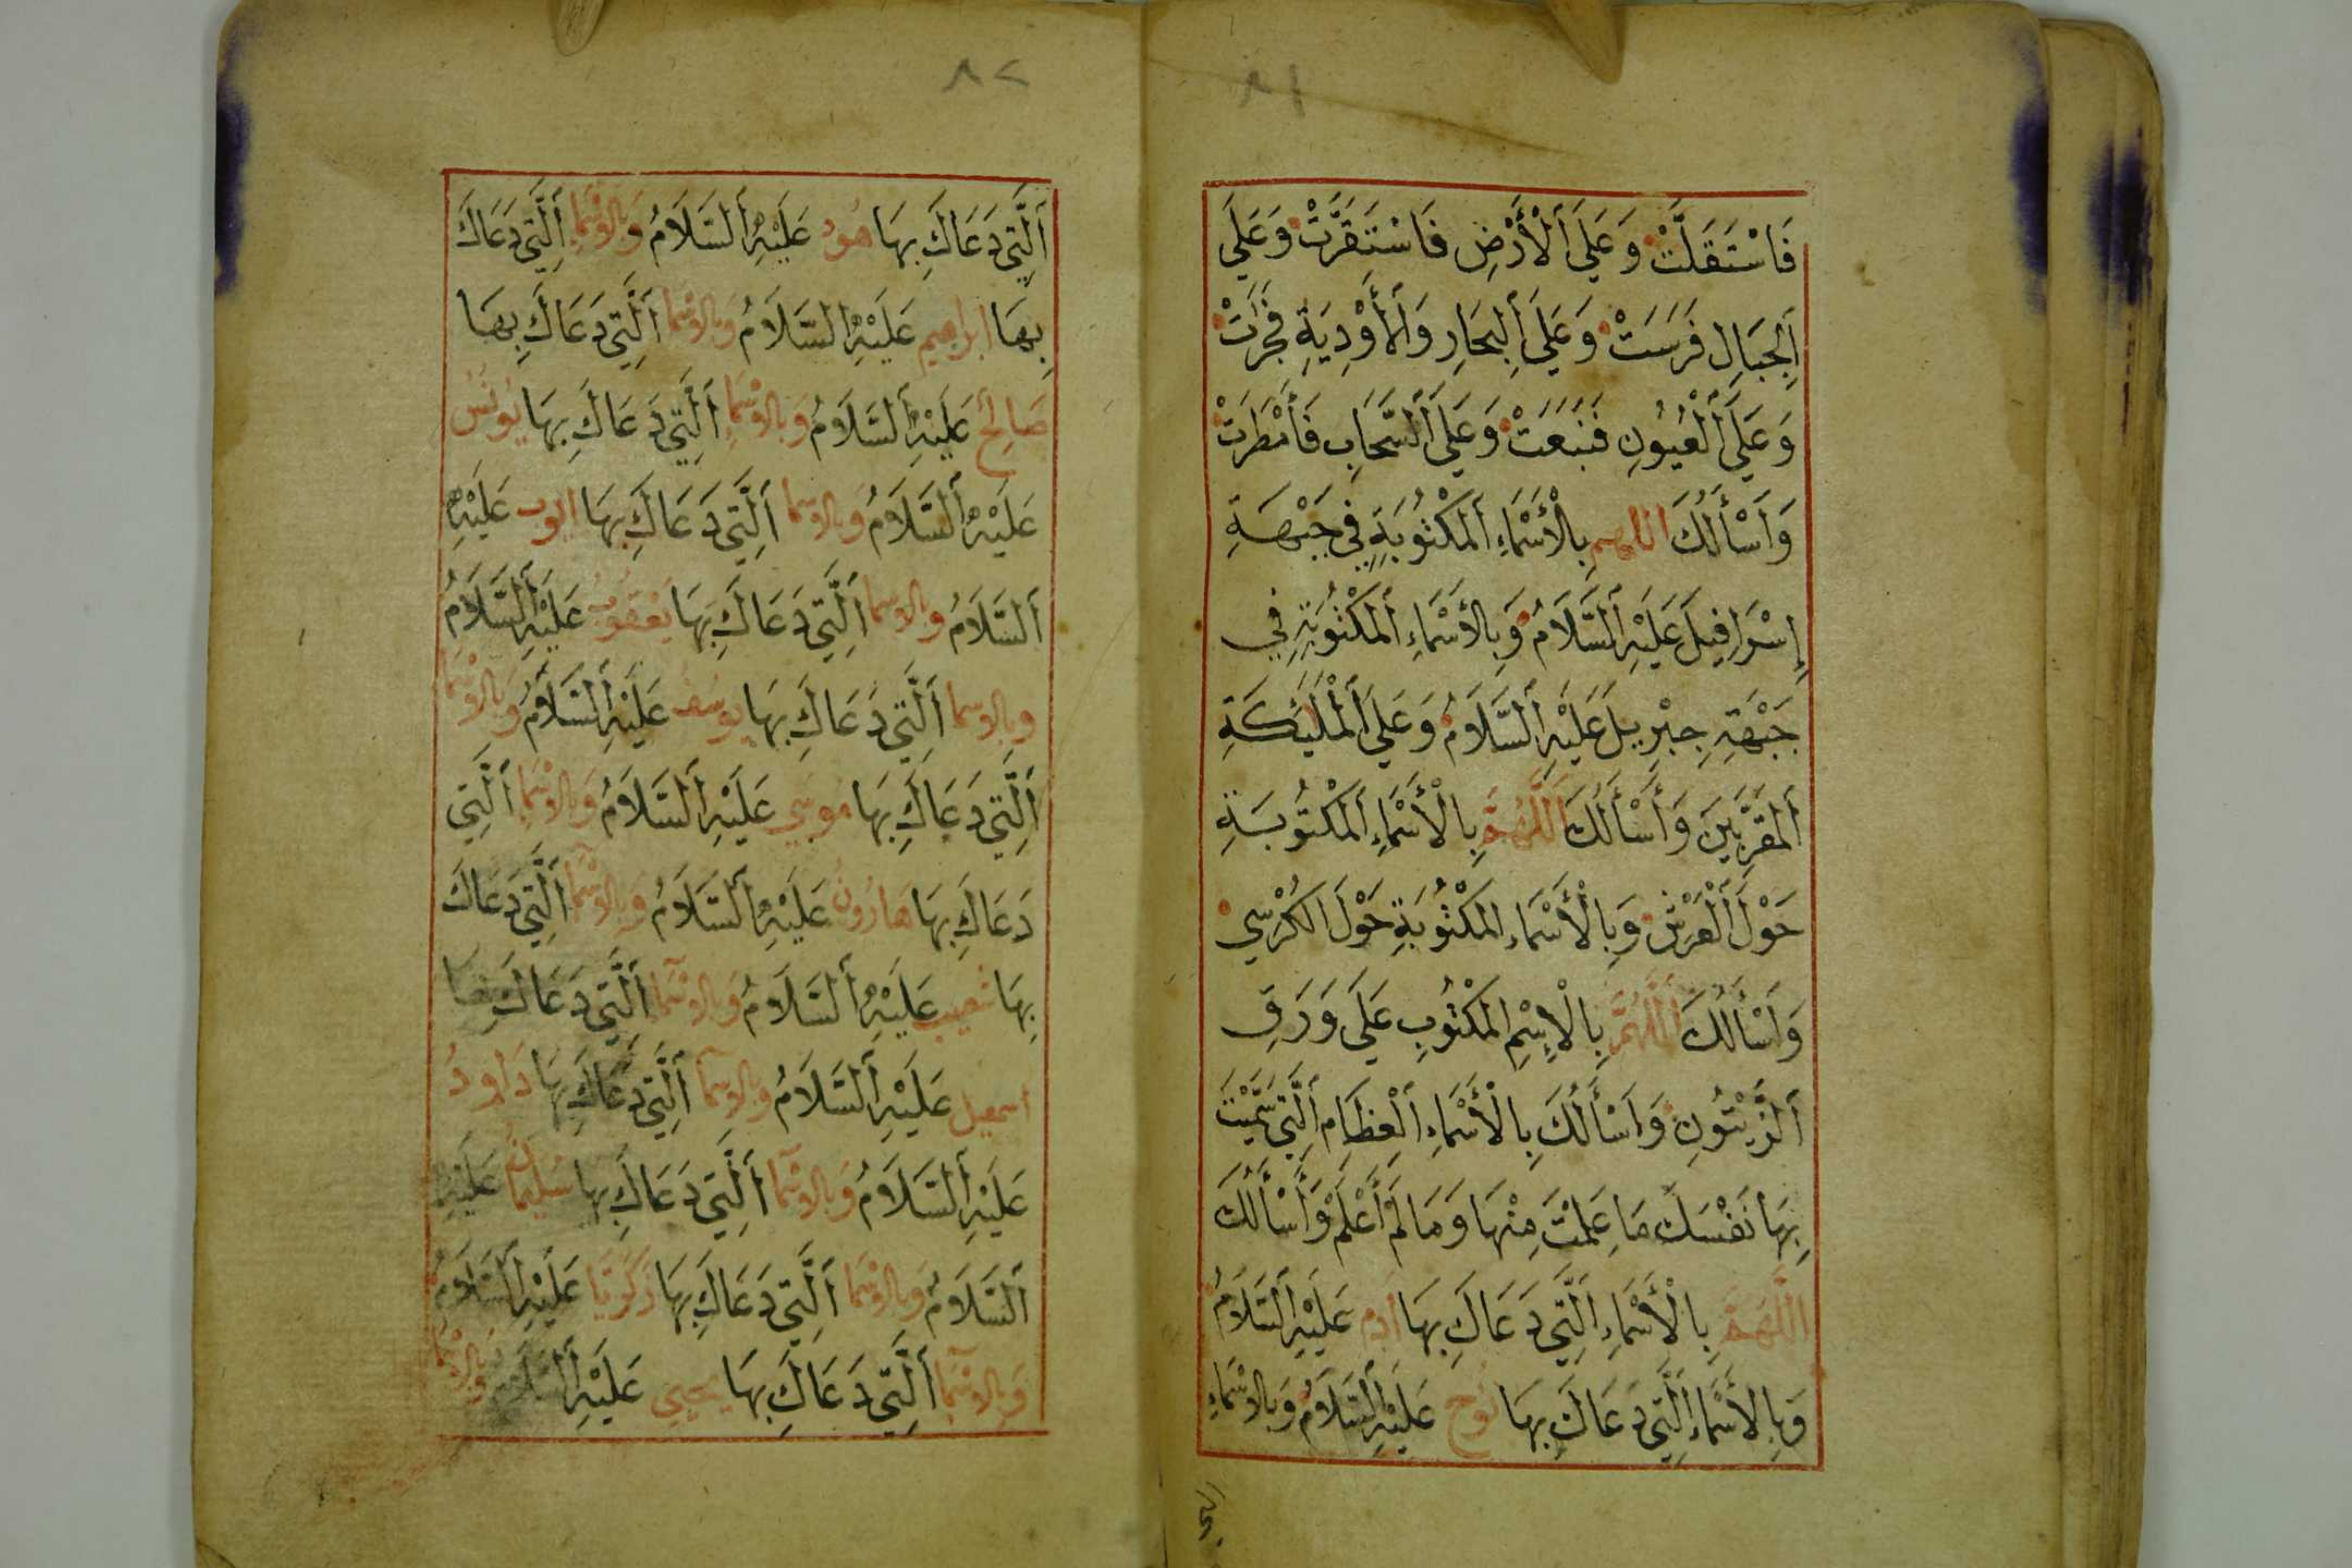 ٨١
فَاسْتَقَلَّتْ وَعَلَى اَلْأَرْضِ فَاسْتَقَرَّتْ وَعَلَي
اَلْجِبَالِ فَرَسَتْ وَعَلَى اَلْبِحَارِ وَالْأَوْدِيَةِ فَجَرَتْ
وَعَلَى اَلْعُيُونِ فَنَبَعَتْ وَعَلَى اَلسَّحَابِ فَأَمْطَرَتْ
وَاَسْأَلُكَ اللهم بِالْأَسْمَاءِ اَلْمَكْتُوبَةِ فِي جَبْهَةِ
إِسْرَافِيلَ عَلَيْهِ اَلسَّلَامُ وَبِالْأَسْمَاءِ اَلْمَكْتُوبَةِ فِي
جَبْهَةِ جِبْرِيلَ عَلَيْهِ اَلسَّلَامُ وَعَلَى اَلْمَلٰئِكَةِ
اَلْمُقَرَّبِينَ وَأَسْأَلُكَ اَللَّهُمَّ بِالْأَسْمَاءِ اَلْمَكْتُوبَةِ
حَوْلَ اَلْعَرْشِ وَبِالْأَسْمَاءِ الْمَكْتُوبَةِ حَوْلَ الْكُرْسِي
وَاَسْأَلُكَ اَللَّهُمَّ بِالْإِسْمِ الْمَكْتُوبِ عَلَى وَرَقِ
اَلزَّيْتُونِ وَاَسْأَلُكَ بِالْأَسْمَاءِ اَلْعِظَامِ اَلَّتِي سَمَّيْتَ
بِهَا نَفْسَكَ مَا عَلِمْتُ مِنْهَا وَمَا لَمْ أَعْلَمْ وَأَسْأَلُكَ
اَللَّهُمَّ بِالْأَسْمَاءِ اَلَّتِي دَعَاكَ بِهَا اٰدَمُ عَلَيْهِ اَلسَّلَامُ
وَبِالْأَسْمَاءِ اَلَّتِي دَعَاكَ بِهَا نُوح عَلَيْهِ اَلسَّلَامُ وَبِالاسْمَاءِ
٨٢
اَلَّتِي دَعَاكَ بِهَا هُود عَلَيْهِ اَلسَّلَامُ وَبِالاسْمَاءِ اَلَّتِي دَعَاكَ
بِهَا ابراهيم عَلَيْهِ السَّلَامُ وَبالاسْمَا اَلَّتِي دَعَاكَ بِهَا
صَالِح عَلَيْهِ اَلسَّلَامُ وَبالاسْمَاءِ اَلَّتِي دَعَاكَ بِهَا يُونُسُ
عَلَيْهِ اَلسَّلَامُ وَبالاسما اَلَّتِي دَعَاكَ بِهَا ايوب عَلَيْهِ
اَلسَّلَامُ وبالاسما اَلَّتِي دَعَاكَ بِهَا يَعْقُوبُ عَلَيْهِ اَلسَّلَامُ
وبالاسما اَلَّتِي دَعَاكَ بِهَا يوسف عَلَيْهِ اَلسَّلَامُ وَبالاسْمَا
اَلَّتِي دَعَاكَ بِهَا مُوسَي عَلَيْهِ اَلسَّلَامُ وَبالاسْمَاءِ اَلَّتِي
دَعَاكَ بِهَا هَارُونُ عَلَيْهِ اَلسَّلَامُ وَبالاسْمَا اَلَّتِي دَعَاكَ
بِهَا شعيب عَلَيْهِ اَلسَّلَامُ وَبالاسْمَا اَلَّتِي دَعَاكَ بِهَا
اسمعيل عَلَيْهِ اَلسَّلَامُ وبالاسما اَلَّتِي دَعَاكَ بِهَا دَاودُ
عَلَيْهِ اَلسَّلَامُ وَبالاسْمَا اَلَّتِي دَعَاكَ بِهَا سُلَيْمَانُ عَلَيْهِ
اَلسَّلَامُ وَبالاسْمَا اَلَّتِي دَعَاكَ بِهَا زَكَرِيَّا عَلَيْهِ اَلسَّلَامُ
وَبالاسْمَا اَلَّتِي دَعَاكَ بِهَا يحيي عَلَيْهِ اَلسَّلَامُ وبالاسْمَا